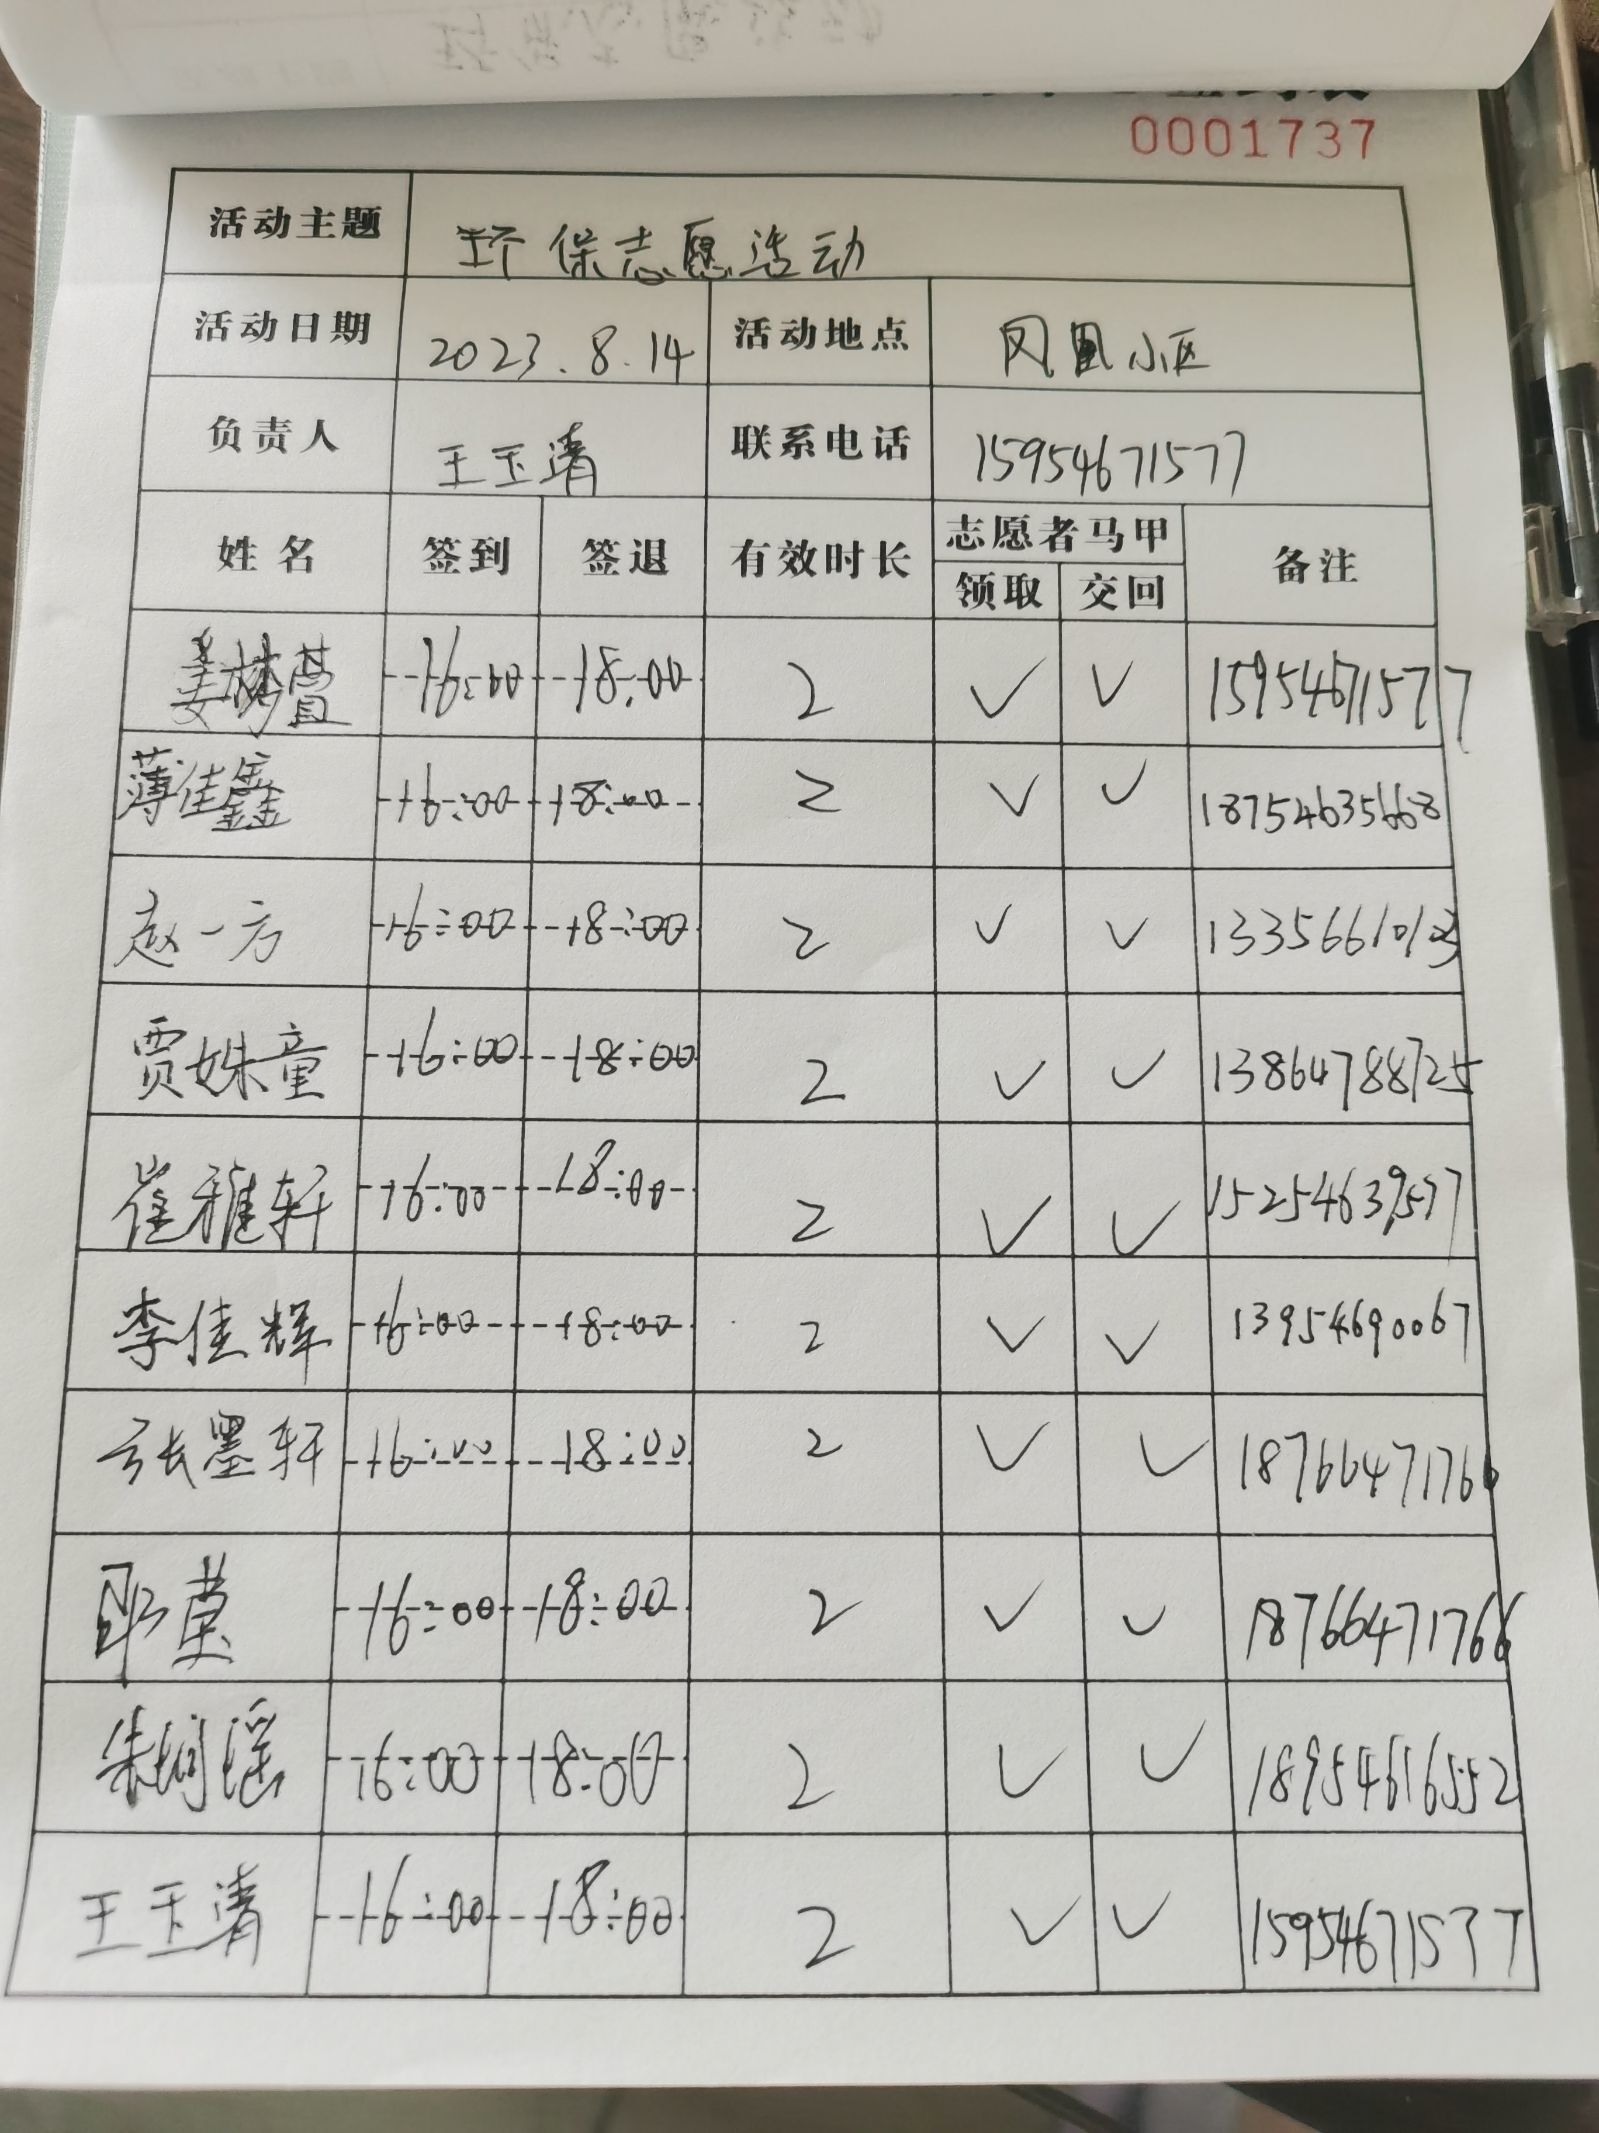 0001737
活动主题 环保志愿活动
活动日期 2023.8.14 活动地点 凤凰小区
负责人 王玉清 联系电话 15954671577
姓名 签到 签退 有效时长 志愿者马甲 备注
领取 交回
姜梦萱 16:00 18:00 2 ✓ ✓ 15954671577
薄佳鑫 16:00 18:00 2 ✓ ✓ 18754635668
赵一方 16:00 18:00 2 ✓ ✓
贾姝童 16:00 18:00 2 ✓ ✓ 13864788725
崔雅轩 16:00 18:00 2 ✓ ✓ 15254639577
李佳辉 16:00 18:00 2 ✓ ✓ 13954690067
张墨轩 16:00 18:00 2 ✓ ✓ 18766471766
16:00 18:00 2 ✓ ✓ 18766471766
16:00 18:00 2 ✓ ✓ 18954616552
王玉清 16:00 18:00 2 ✓ ✓ 15954671577